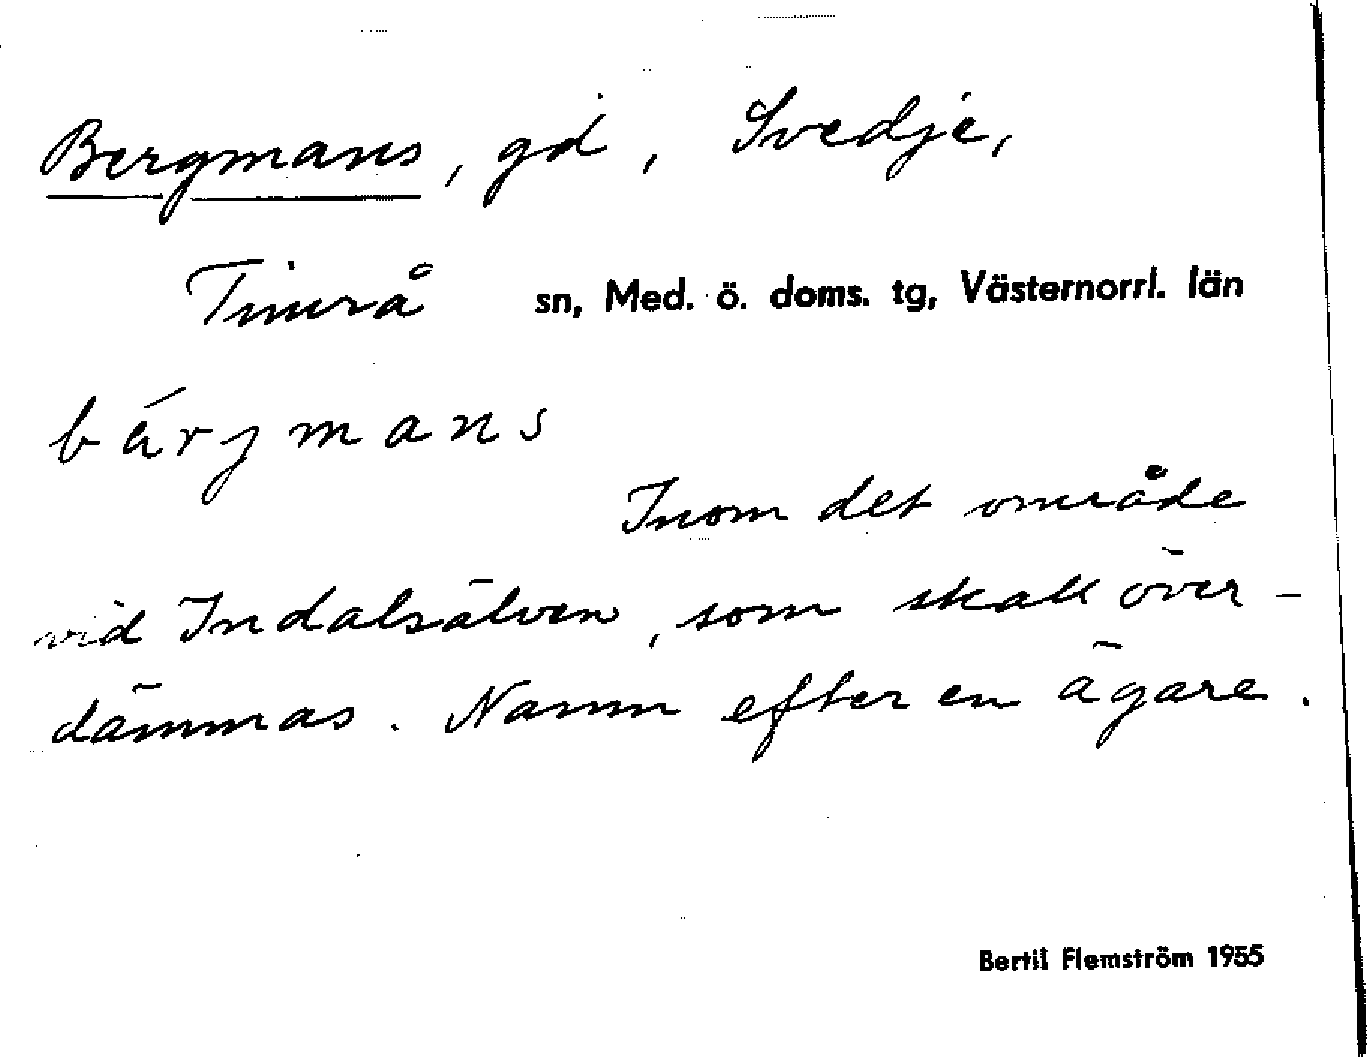 Bergmans, gd, Svedje,
Timrå sn, Med. ö. doms. tg, Västernorrl. län
bä́rjmans
Inom det område
vid Indalsälven, som skall över-
dämmas. Namn efter en ägare.
Bertil Flemström 1955